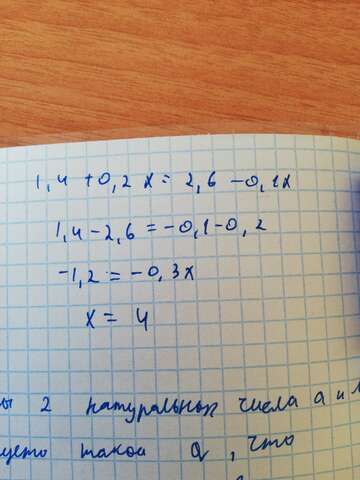 1,4 + 0,2 x = 2,6 - 0,1x
1,4 - 2,6 = -0,1 - 0,2
-1,2 = -0,3x
x = 4
2 натуральных числа а и
такое q, что